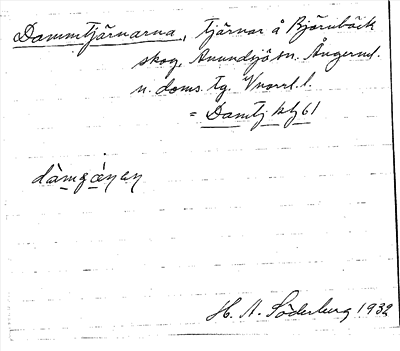 Dammtjärnarna, tjärnar å Björnbäck
skog, Anundsjö sn. Ångerml.
n. doms. tg. Vnorrl. l.
= Damtj ktj 61
H. A. Söderberg 1932